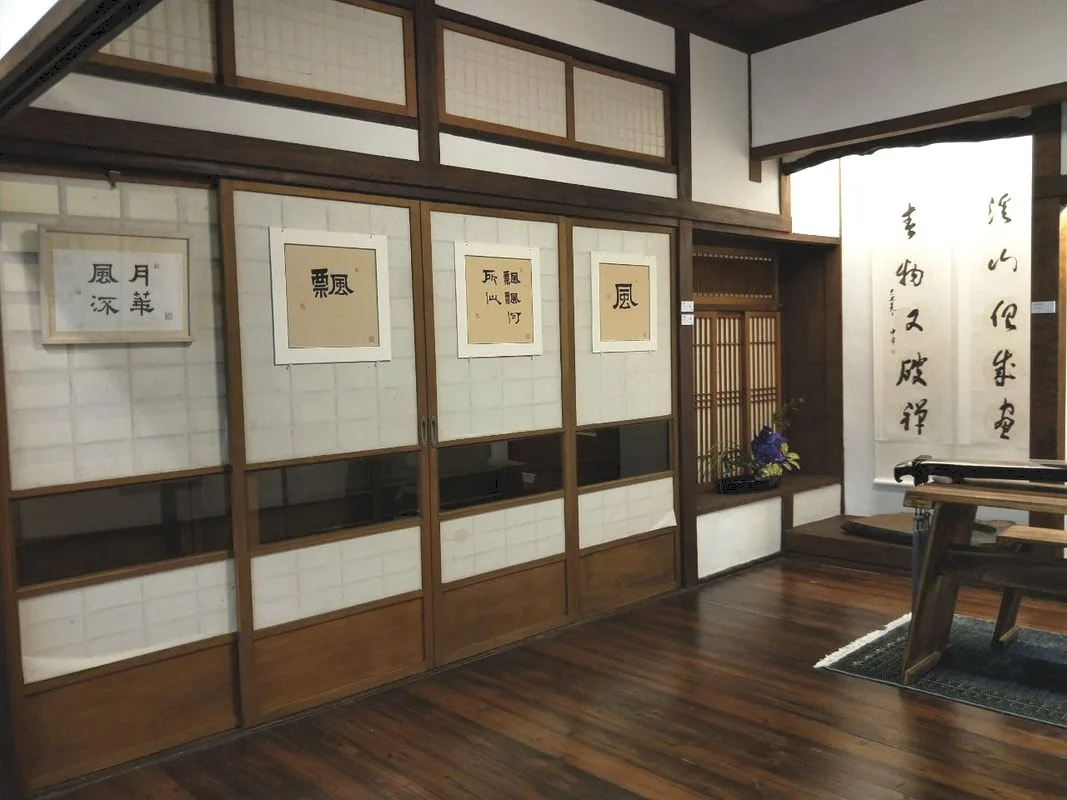 月華
風
飄
飄飄何
所似
風
溪山但成畫
春物又破禪